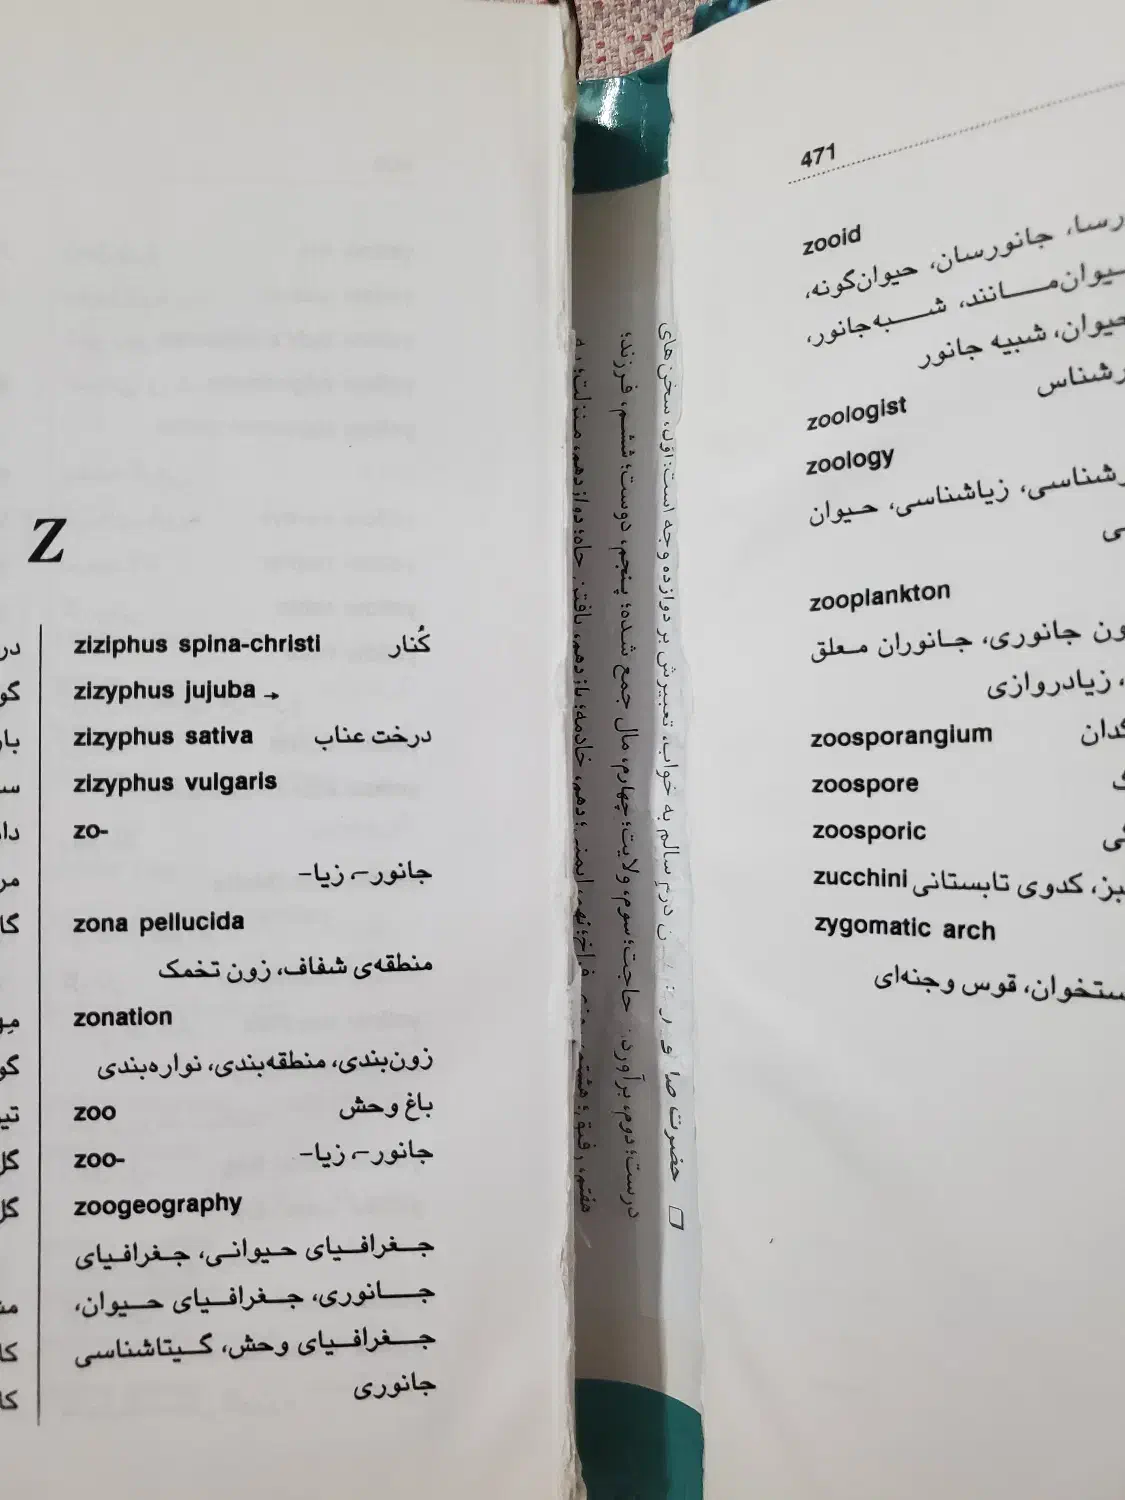 Z
ziziphus spina-christi کُنار
zizyphus jujuba →
zizyphus sativa درخت عناب
zizyphus vulgaris
zo-
جانور-، زیا-
zona pellucida
منطقه‌ی شفاف، زون تخمک
zonation
زون‌بندی، منطقه‌بندی، نواره‌بندی
zoo باغ وحش
zoo- جانور-، زیا-
zoogeography
جغرافیای حیوانی، جغرافیای
جانوری، جغرافیای حیوان،
جغرافیای وحش، گیتاشناسی
جانوری
□ حضرت صا در سالم به خواب، تعبیرش بر دوازده وجه است: اوّل، سخن‌های
درست؛ دوم، برآوردن حاجت؛ سوم، ولایت؛ چهارم، مال جمع شده؛ پنجم، دوست؛ ششم، فرزند؛
هفتم، رفیق؛ هشتم، فراخ؛ نهم، ایمنی؛ دهم، خادمه؛ یازدهم، یافتن جاه؛ دوازدهم، منزلت؛
471
zooid
جانورسان، حیوان‌گونه،
شبه‌جانور،
شبیه جانور
zoologist
zoology
زیاشناسی، حیوان
zooplankton
جانوری، جانوران معلق
، زیادروازی
zoosporangium
zoospore
zoosporic
zucchini کدوی تابستانی
zygomatic arch
قوس وجنه‌ای